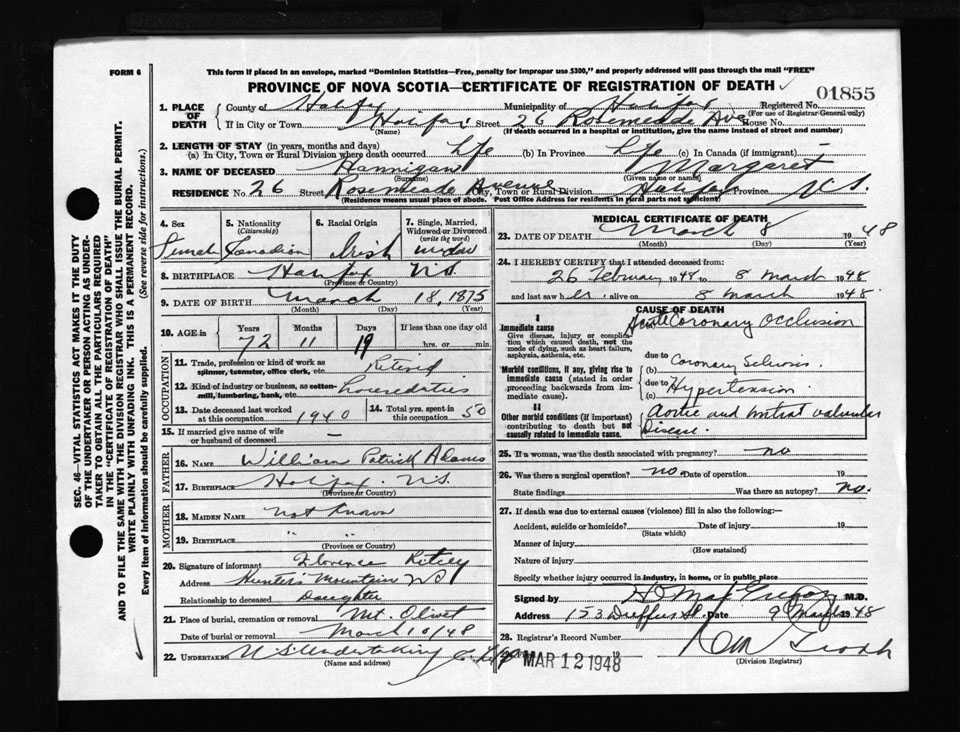 FORM 6
This form if placed in an envelope, marked "Dominion Statistics—Free, penalty for improper use $300," and properly addressed will pass through the mail "FREE"
PROVINCE OF NOVA SCOTIA—CERTIFICATE OF REGISTRATION OF DEATH
01855
1. PLACE OF DEATH
County of Halifax Municipality of Halifax Registered No.
(For use of Registrar-General only)
If in City or Town Halifax Street 26 Rosemeade Ave House No.
(Name) (If death occurred in a hospital or institution, give the name instead of street and number)
2. LENGTH OF STAY (in years, months and days)
(a) In City, Town or Rural Division where death occurred life (b) In Province life (c) In Canada (if immigrant) —
3. NAME OF DECEASED Hannigan Margaret
(Surname) (Given name or names)
RESIDENCE No. 26 Street Rosemeade Avenue City, Town or Rural Division Halifax Province N.S.
(Residence means usual place of abode. Post Office Address for residents in rural parts not sufficient)
4. Sex Female
5. Nationality (Citizenship) Canadian
6. Racial Origin Irish
7. Single, Married, Widowed or Divorced (write the word) widow
8. BIRTHPLACE Halifax N.S.
(Province or Country)
9. DATE OF BIRTH March 18, 1875
(Month) (Day) (Year)
10. AGE in Years Months Days If less than one day old
72 11 19 hrs. or min.
OCCUPATION
11. Trade, profession or kind of work as spinner, teamster, office clerk, etc. Retired
12. Kind of industry or business, as cotton-mill, lumbering, bank, etc. house duties
13. Date deceased last worked at this occupation 1940
14. Total yrs. spent in this occupation 50
15. If married give name of wife or husband of deceased —
FATHER
16. NAME William Patrick Adams
17. BIRTHPLACE Halifax N.S.
(Province or Country)
MOTHER
18. MAIDEN NAME not known
19. BIRTHPLACE " "
(Province or Country)
20. Signature of informant Florence Ritcey
Address Hunters Mountain NS
Relationship to deceased Daughter
21. Place of burial, cremation or removal Mt. Olivet
Date of burial or removal March 10/48
22. UNDERTAKER N S Undertaking Co. Ltd
(Name and address)
MEDICAL CERTIFICATE OF DEATH
23. DATE OF DEATH March 8 1948
(Month) (Day) (Year)
24. I HEREBY CERTIFY that I attended deceased from:
26 February 1948 to 8 March 1948
and last saw her alive on 8 March 1948
CAUSE OF DEATH
I
Immediate cause
Give disease, injury or complication which caused death, not the mode of dying, such as heart failure, asphyxia, asthenia, etc.
Acute Coronary Occlusion
Morbid conditions, if any, giving rise to immediate cause (stated in order proceeding backwards from immediate cause).
due to
(b) Coronary Sclerosis.
due to
(c) Hypertension.
II
Other morbid conditions (if important) contributing to death but not causally related to immediate cause.
Aortic and mitral valvular Disease.
25. If a woman, was the death associated with pregnancy? no
26. Was there a surgical operation? no. Date of operation 19
State findings Was there an autopsy? no.
27. If death was due to external causes (violence) fill in also the following:—
Accident, suicide or homicide? Date of injury 19
(State which)
Manner of injury
(How sustained)
Nature of injury
Specify whether injury occurred in industry, in home, or in public place
Signed by M.D.
Address 153 Duffus St. Date 9 March 1948
28. Registrar's Record Number
MAR 12 1948
(Division Registrar)
SEC. 46—VITAL STATISTICS ACT MAKES IT THE DUTY
OF THE UNDERTAKER OR PERSON ACTING AS UNDER-
TAKER TO OBTAIN ALL THE PARTICULARS REQUIRED
IN THE "CERTIFICATE OF REGISTRATION OF DEATH"
AND TO FILE THE SAME WITH THE DIVISION REGISTRAR WHO SHALL ISSUE THE BURIAL PERMIT.
WRITE PLAINLY WITH UNFADING INK. THIS IS A PERMANENT RECORD.
Every item of information should be carefully supplied. (See reverse side for instructions.)